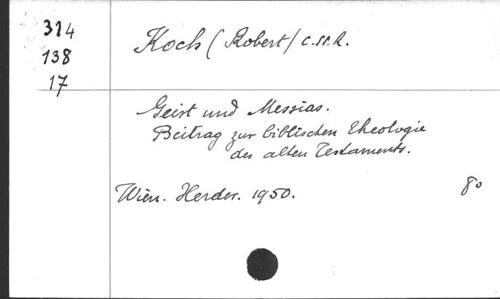 314
138
17
Koch (Robert) C.SS.R.
Geist und Messias.
Beitrag zur biblischen Theologie
des alten Testaments.
Wien. Herder. 1950.
8o